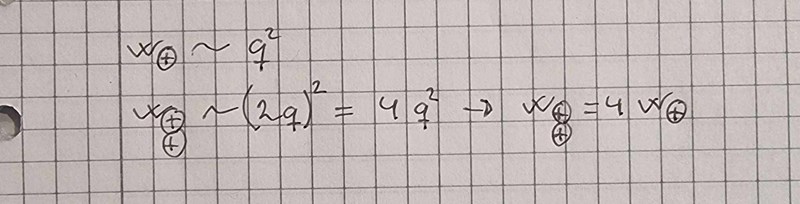 w⊕ ~ q²
w⊕⊕ ~ (2q)² = 4q² → w⊕⊕ = 4 w⊕